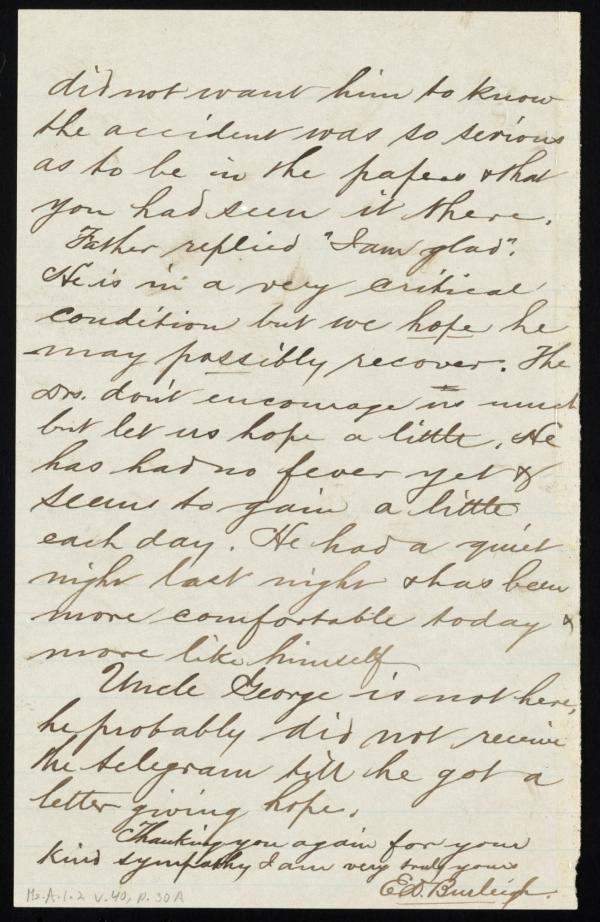 did not want him to know
the accident was so serious
as to be in the papers & that
you had seen it there.
Father replied "I am glad".
He is in a very critical
condition but we hope he
may possibly recover. The
Drs. don't encourage us much
but let us hope a little. He
has had no fever yet &
seems to gain a little
each day. He had a quiet
night last night & has been
more comfortable today &
more like himself
Uncle George is not here,
he probably did not receive
the telegram till he got a
letter giving hope.
Thanking you again for your
kind sympathy I am very truly yours
E.D. Burleigh.
Ms. A.1.2 v.40, p.30A